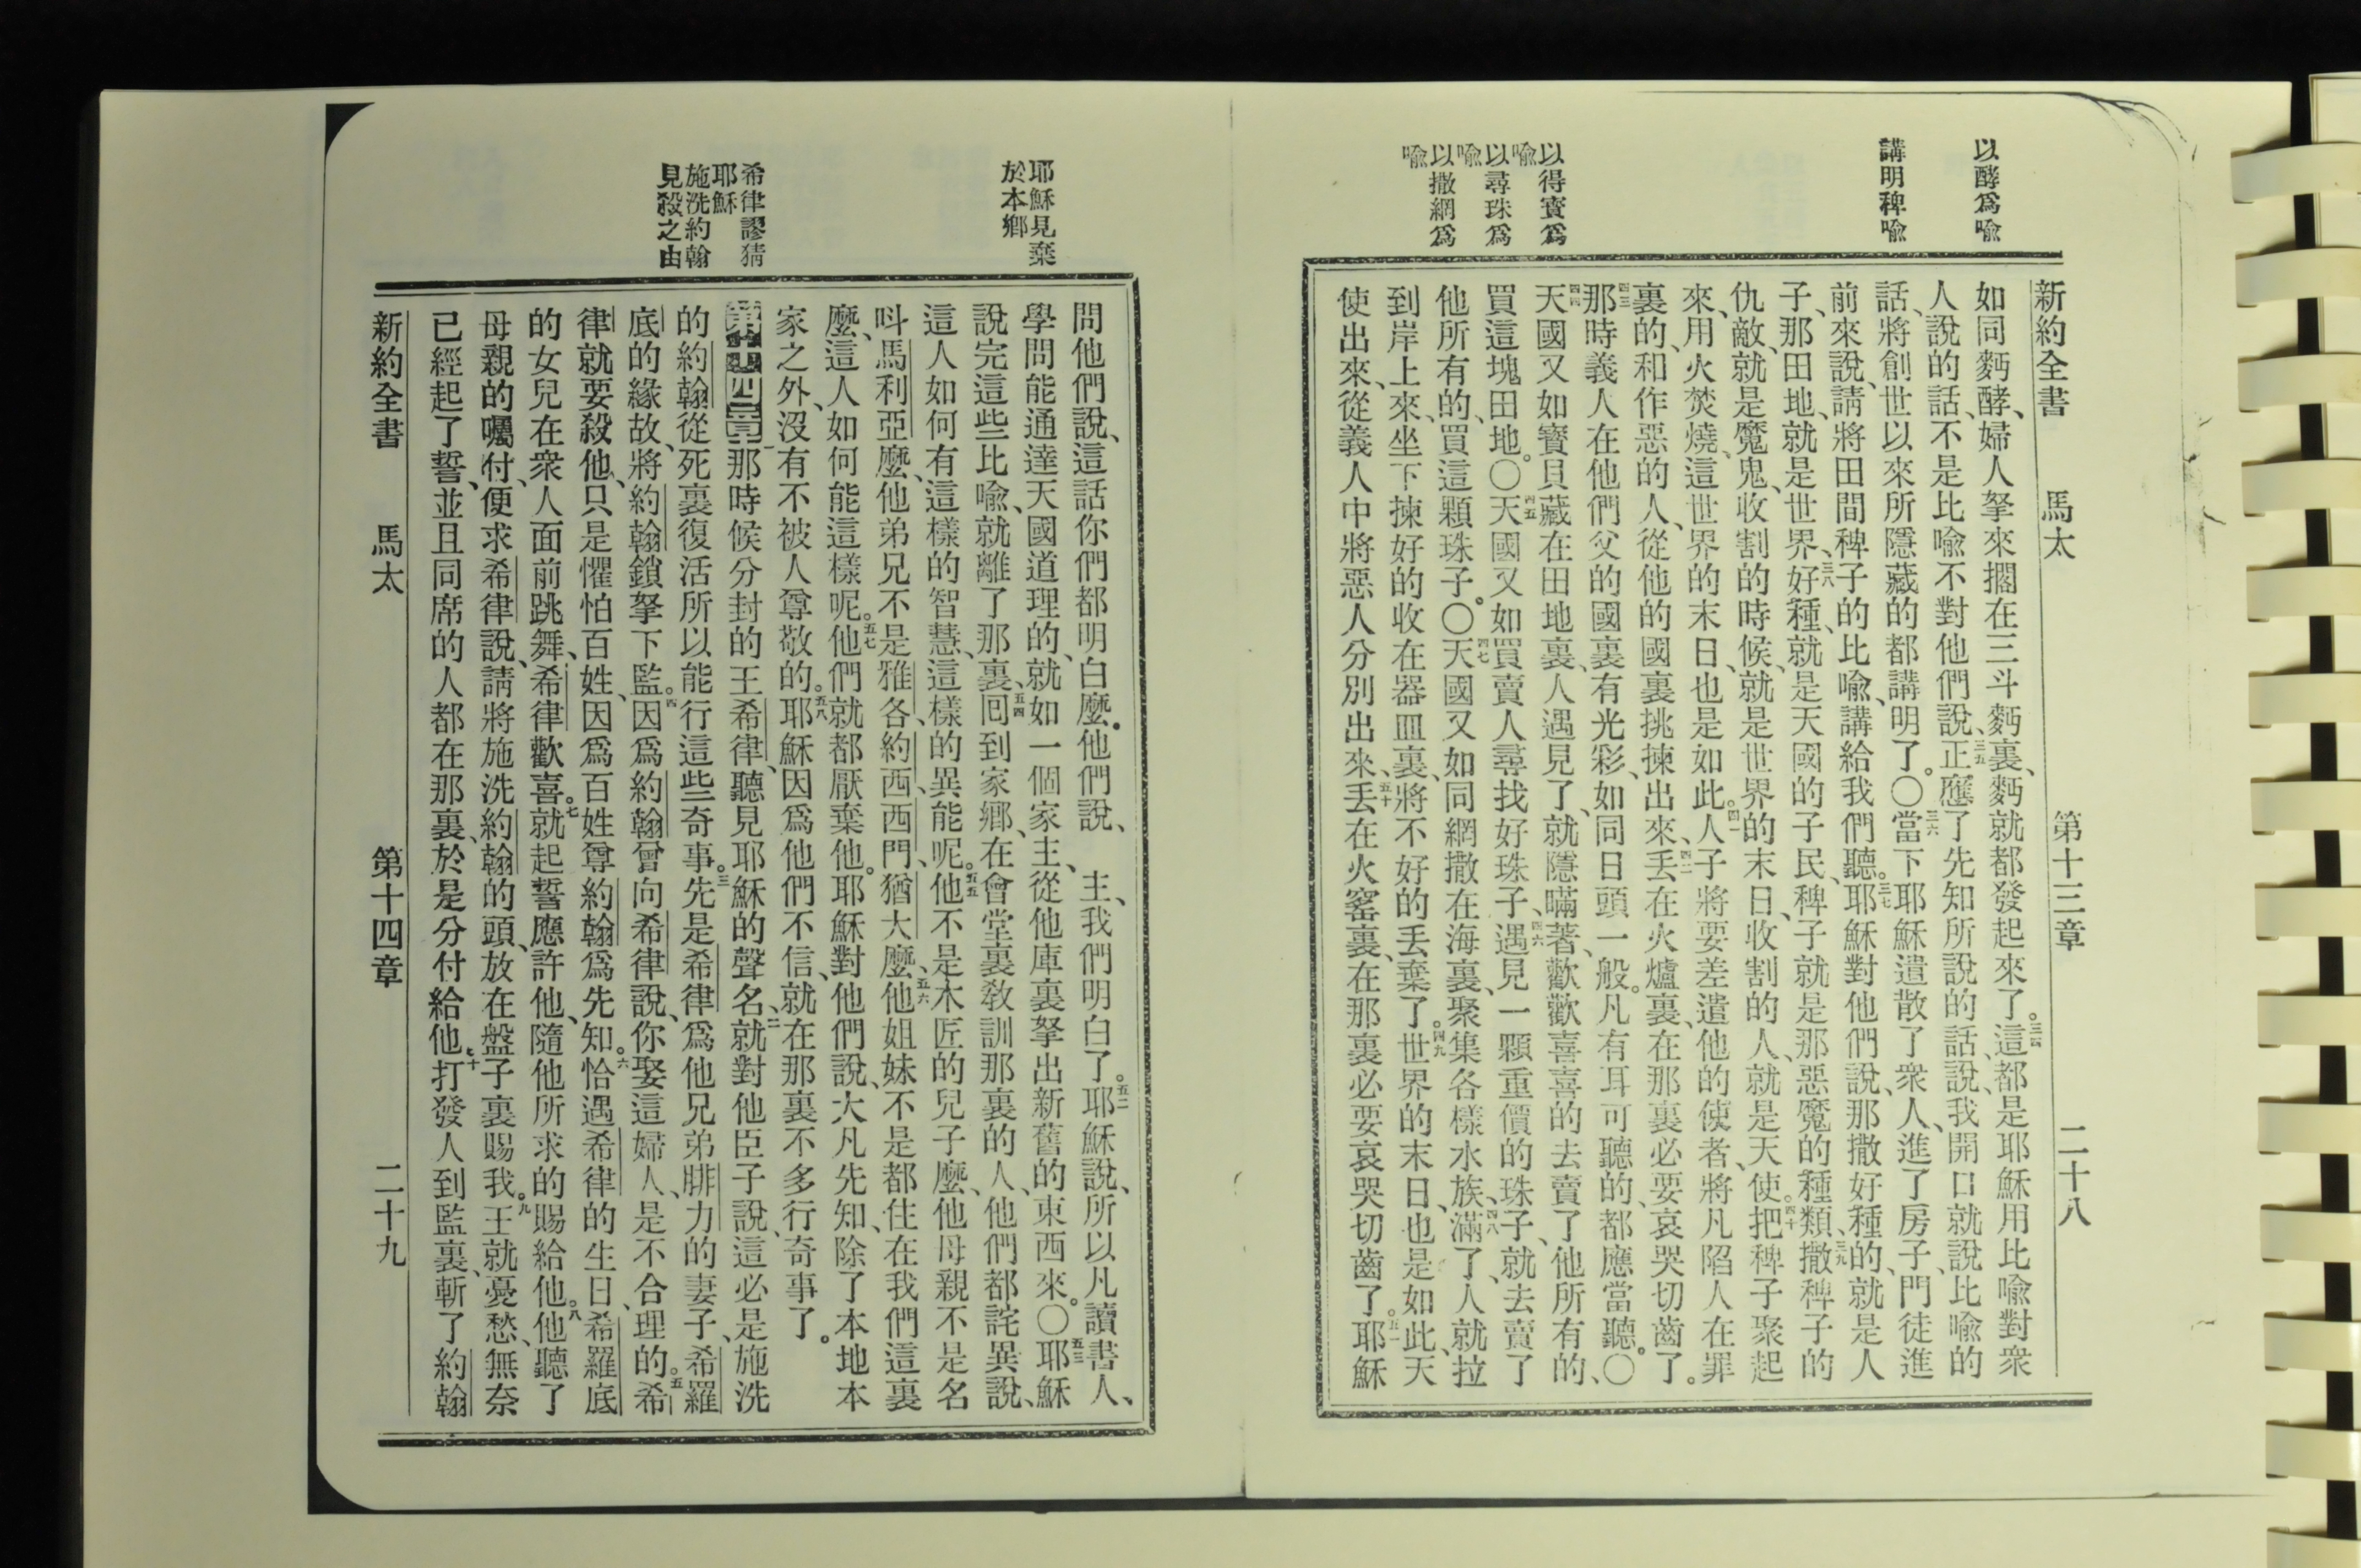 以酵爲喻
講明稗喻
以得寳爲
喻
以尋珠爲
喻
以撒網爲
喻
新約全書 馬太 第十三章 二十八
如同麪酵、婦人拏來擱在三斗麪裏、麪就都發起來了。三四這都是耶穌用比喻對衆
人說的話、不是比喻不對他們說、三五正應了先知所說的話、說、我開口就說比喻的
話、將創世以來所隱藏的都講明了。〇三六當下耶穌遣散了衆人、進了房子、門徒進
前來說、請將田間稗子的比喻、講給我們聽。三七耶穌對他們說、那撒好種的、就是人
子、那田地、就是世界、三八好種、就是天國的子民、稗子就是那惡魔的種類、三九撒稗子的
仇敵、就是魔鬼、收割的時候、就是世界的末日、收割的人、就是天使。四十把稗子聚起
來、用火焚燒、這世界的末日、也是如此。四一人子將要差遣他的使者、將凡陷人在罪
裏的、和作惡的人、從他的國裏挑揀出來、四二丟在火爐裏、在那裏必要哀哭切齒了。
四三那時義人在他們父的國裏有光彩、如同日頭一般。凡有耳可聽的、都應當聽。〇
四四天國又如寳貝藏在田地裏、人遇見了、就隱瞞著、歡歡喜喜的去賣了他所有的、
買這塊田地。〇四五天國又如買賣人尋找好珠子、四六遇見一顆重價的珠子、就去賣了
他所有的、買這顆珠子。〇四七天國又如同網撒在海裏、聚集各樣水族、四八滿了、人就拉
到岸上來、坐下揀好的收在器皿裏、將不好的丟棄了。四九世界的末日、也是如此、天
使出來、從義人中將惡人分別出來、五十丟在火窰裏、在那裏必要哀哭切齒了。五一耶穌
耶穌見棄
於本鄉
希律謬猜
耶穌
施洗約翰
見殺之由
問他們說、這話你們都明白麼。他們說、 主、我們明白了。五二耶穌說、所以凡讀書人、
學問能通達天國道理的、就如一個家主、從他庫裏拏出新舊的東西來。〇五三耶穌
說完這些比喻、就離了那裏、五四回到家鄉、在會堂裏敎訓那裏的人、他們都詫異說、
這人如何有這樣的智慧、這樣的異能呢。五五他不是木匠的兒子麼、他母親不是名
呌馬利亞麼、他弟兄不是雅各、約西、西門、猶大麼、五六他姐妹不是都住在我們這裏
麼、這人如何能這樣呢。五七他們就都厭棄他。耶穌對他們說、大凡先知、除了本地本
家之外、沒有不被人尊敬的。五八耶穌因爲他們不信、就在那裏不多行奇事了。
第十四章一那時候分封的王希律、聽見耶穌的聲名、二就對他臣子說、這必是施洗
的約翰從死裏復活所以能行這些奇事。三先是希律爲他兄弟腓力的妻子、希羅
底的緣故、將約翰鎖拏下監。四因爲約翰曾向希律說、你娶這婦人、是不合理的。五希
律就要殺他、只是懼怕百姓、因爲百姓尊約翰爲先知。六恰遇希律的生日、希羅底
的女兒在衆人面前跳舞、希律歡喜。七就起誓應許他、隨他所求的賜給他。八他聽了
母親的囑付、便求希律說、請將施洗約翰的頭、放在盤子裏賜我。九王就憂愁、無奈
已經起了誓、並且同席的人都在那裏、於是分付給他。十打發人到監裏、斬了約翰
新約全書 馬太 第十四章 二十九